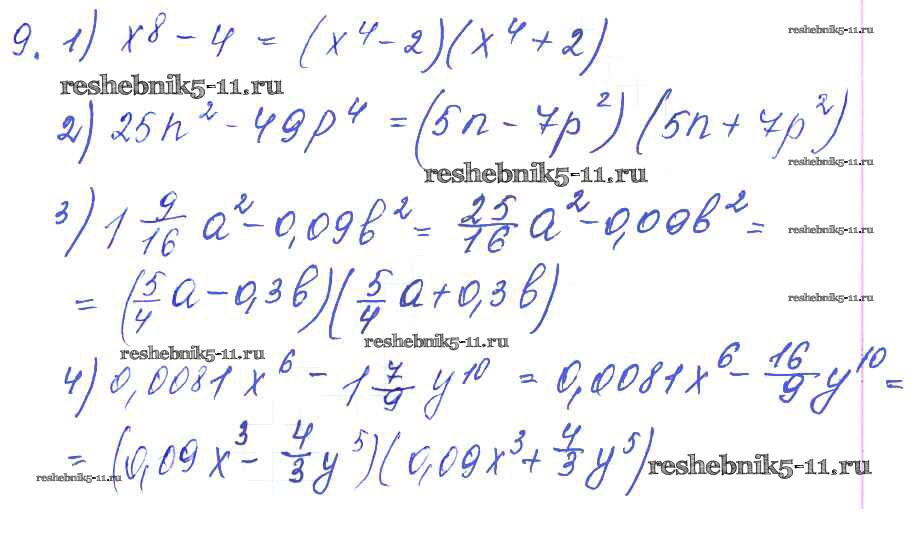 9. 1) x⁸ - 4 = (x⁴ - 2)(x⁴ + 2)
reshebnik5-11.ru
reshebnik5-11.ru
2) 25n² - 49p⁴ = (5n - 7p²)(5n + 7p²)
reshebnik5-11.ru
reshebnik5-11.ru
3) 1 9/16 a² - 0,09b² = 25/16 a² - 0,09b² =
reshebnik5-11.ru
= (5/4 a - 0,3b)(5/4 a + 0,3b)
reshebnik5-11.ru
reshebnik5-11.ru
reshebnik5-11.ru
4) 0,0081x⁶ - 1 7/9 y¹⁰ = 0,0081x⁶ - 16/9 y¹⁰ =
= (0,09x³ - 4/3 y⁵)(0,09x³ + 4/3 y⁵)
reshebnik5-11.ru
reshebnik5-11.ru